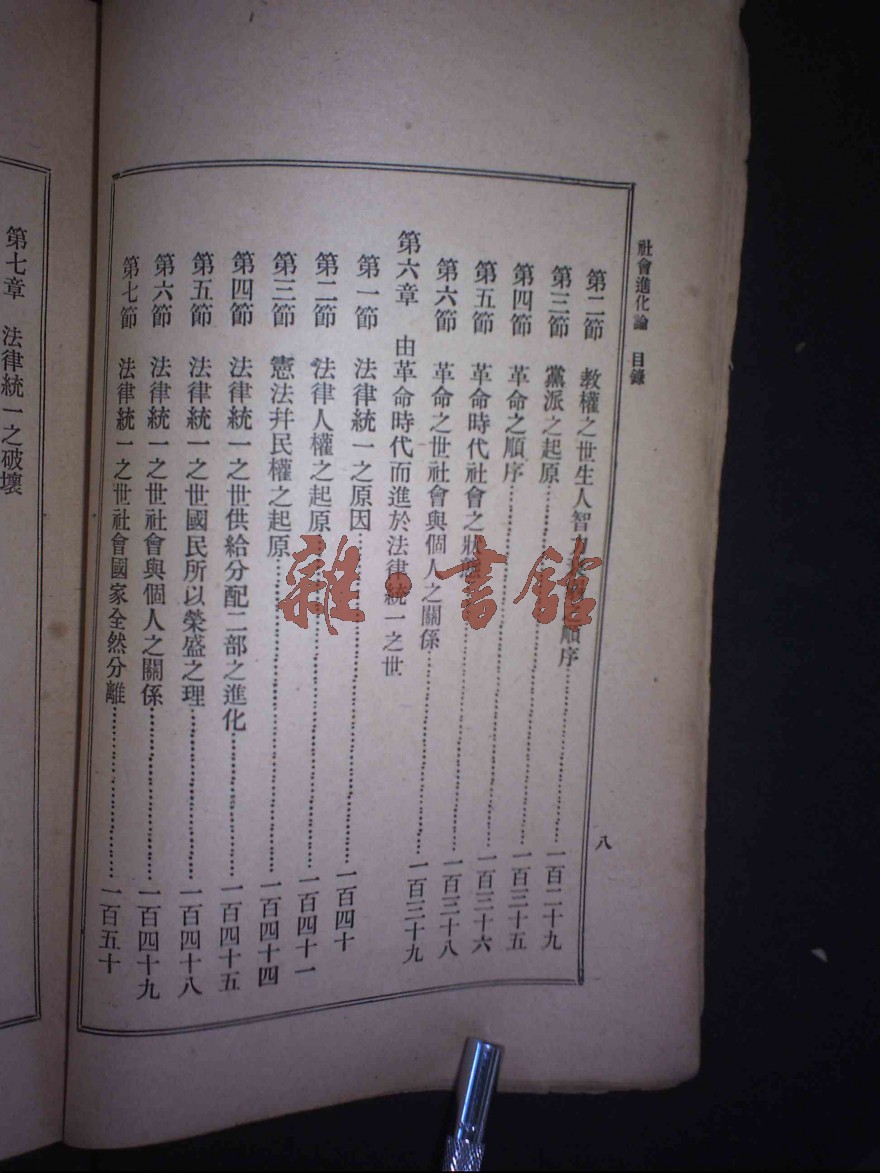 社會進化論 目錄 八
第二節 教權之世生人智 順序 一百二十九
第三節 黨派之起原 一百三十五
第四節 革命之順序 一百三十六
第五節 革命時代社會之狀態 一百三十八
第六節 革命之世社會與個人之關係 一百三十九
第六章 由革命時代而進於法律統一之世
第一節 法律統一之原因 一百四十
第二節 法律人權之起原 一百四十一
第三節 憲法幷民權之起原 一百四十四
第四節 法律統一之世供給分配二部之進化 一百四十五
第五節 法律統一之世國民所以榮盛之理 一百四十八
第六節 法律統一之世社會與個人之關係 一百四十九
第七節 法律統一之世社會國家全然分離 一百五十
第七章 法律統一之破壞
雜·書館